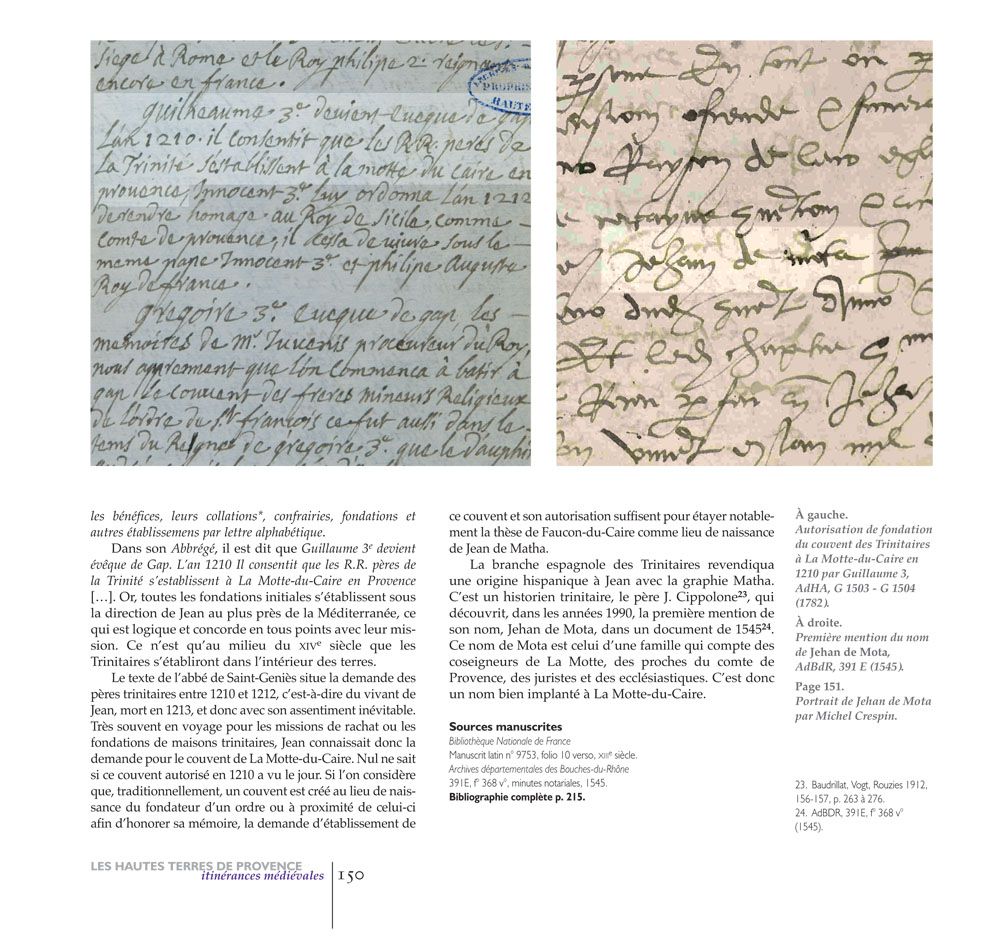 siege à Rome et le Roy philipe 2. reignant
encore en france.
guilheaume 3.e devient evêque de gap
L'an 1210. il consentit que les R.R. peres de
La Trinité s'establissent à la motte du caire en
provence, Innocent 3.e luy ordonna l'an 1212
de rendre homage au Roy de Sicile, comme
comte de provence, il cessa de vivre sous le
meme pape Innocent 3.e et philipe Auguste
Roy de france.
gregoire 3.e eveque de gap, les
memoires de Mr. Juvenis procureur du Roy,
nous aprennent que l'on commenca à batir à
gap le couvent des freres mineurs Religieux
de l'ordre de St. françois ce fut aussi dans le
tems du Reigne de gregoire 3.e que le dauphin
PROPRI
HAUTE
Jehan de Mota
les bénéfices, leurs collations*, confrairies, fondations et
autres établissemens par lettre alphabétique.
Dans son Abbrégé, il est dit que Guillaume 3e devient
évêque de Gap. L'an 1210 Il consentit que les R.R. pères de
la Trinité s'establissent à La Motte-du-Caire en Provence
[…]. Or, toutes les fondations initiales s'établissent sous
la direction de Jean au plus près de la Méditerranée, ce
qui est logique et concorde en tous points avec leur mis-
sion. Ce n'est qu'au milieu du XIVe siècle que les
Trinitaires s'établiront dans l'intérieur des terres.
Le texte de l'abbé de Saint-Geniès situe la demande des
pères trinitaires entre 1210 et 1212, c'est-à-dire du vivant de
Jean, mort en 1213, et donc avec son assentiment inévitable.
Très souvent en voyage pour les missions de rachat ou les
fondations de maisons trinitaires, Jean connaissait donc la
demande pour le couvent de La Motte-du-Caire. Nul ne sait
si ce couvent autorisé en 1210 a vu le jour. Si l'on considère
que, traditionnellement, un couvent est créé au lieu de nais-
sance du fondateur d'un ordre ou à proximité de celui-ci
afin d'honorer sa mémoire, la demande d'établissement de
ce couvent et son autorisation suffisent pour étayer notable-
ment la thèse de Faucon-du-Caire comme lieu de naissance
de Jean de Matha.
La branche espagnole des Trinitaires revendiqua
une origine hispanique à Jean avec la graphie Matha.
C'est un historien trinitaire, le père J. Cippolone23, qui
découvrit, dans les années 1990, la première mention de
son nom, Jehan de Mota, dans un document de 154524.
Ce nom de Mota est celui d'une famille qui compte des
coseigneurs de La Motte, des proches du comte de
Provence, des juristes et des ecclésiastiques. C'est donc
un nom bien implanté à La Motte-du-Caire.
Sources manuscrites
Bibliothèque Nationale de France
Manuscrit latin n° 9753, folio 10 verso, XIIIe siècle.
Archives départementales des Bouches-du-Rhône
391E, f° 368 v°, minutes notariales, 1545.
Bibliographie complète p. 215.
À gauche.
Autorisation de fondation
du couvent des Trinitaires
à La Motte-du-Caire en
1210 par Guillaume 3,
AdHA, G 1503 - G 1504
(1782).
À droite.
Première mention du nom
de Jehan de Mota,
AdBdR, 391 E (1545).
Page 151.
Portrait de Jehan de Mota
par Michel Crespin.
23. Baudrillat, Vogt, Rouzies 1912,
156-157, p. 263 à 276.
24. AdBDR, 391E, f° 368 v°
(1545).
LES HAUTES TERRES DE PROVENCE
itinérances médiévales
150